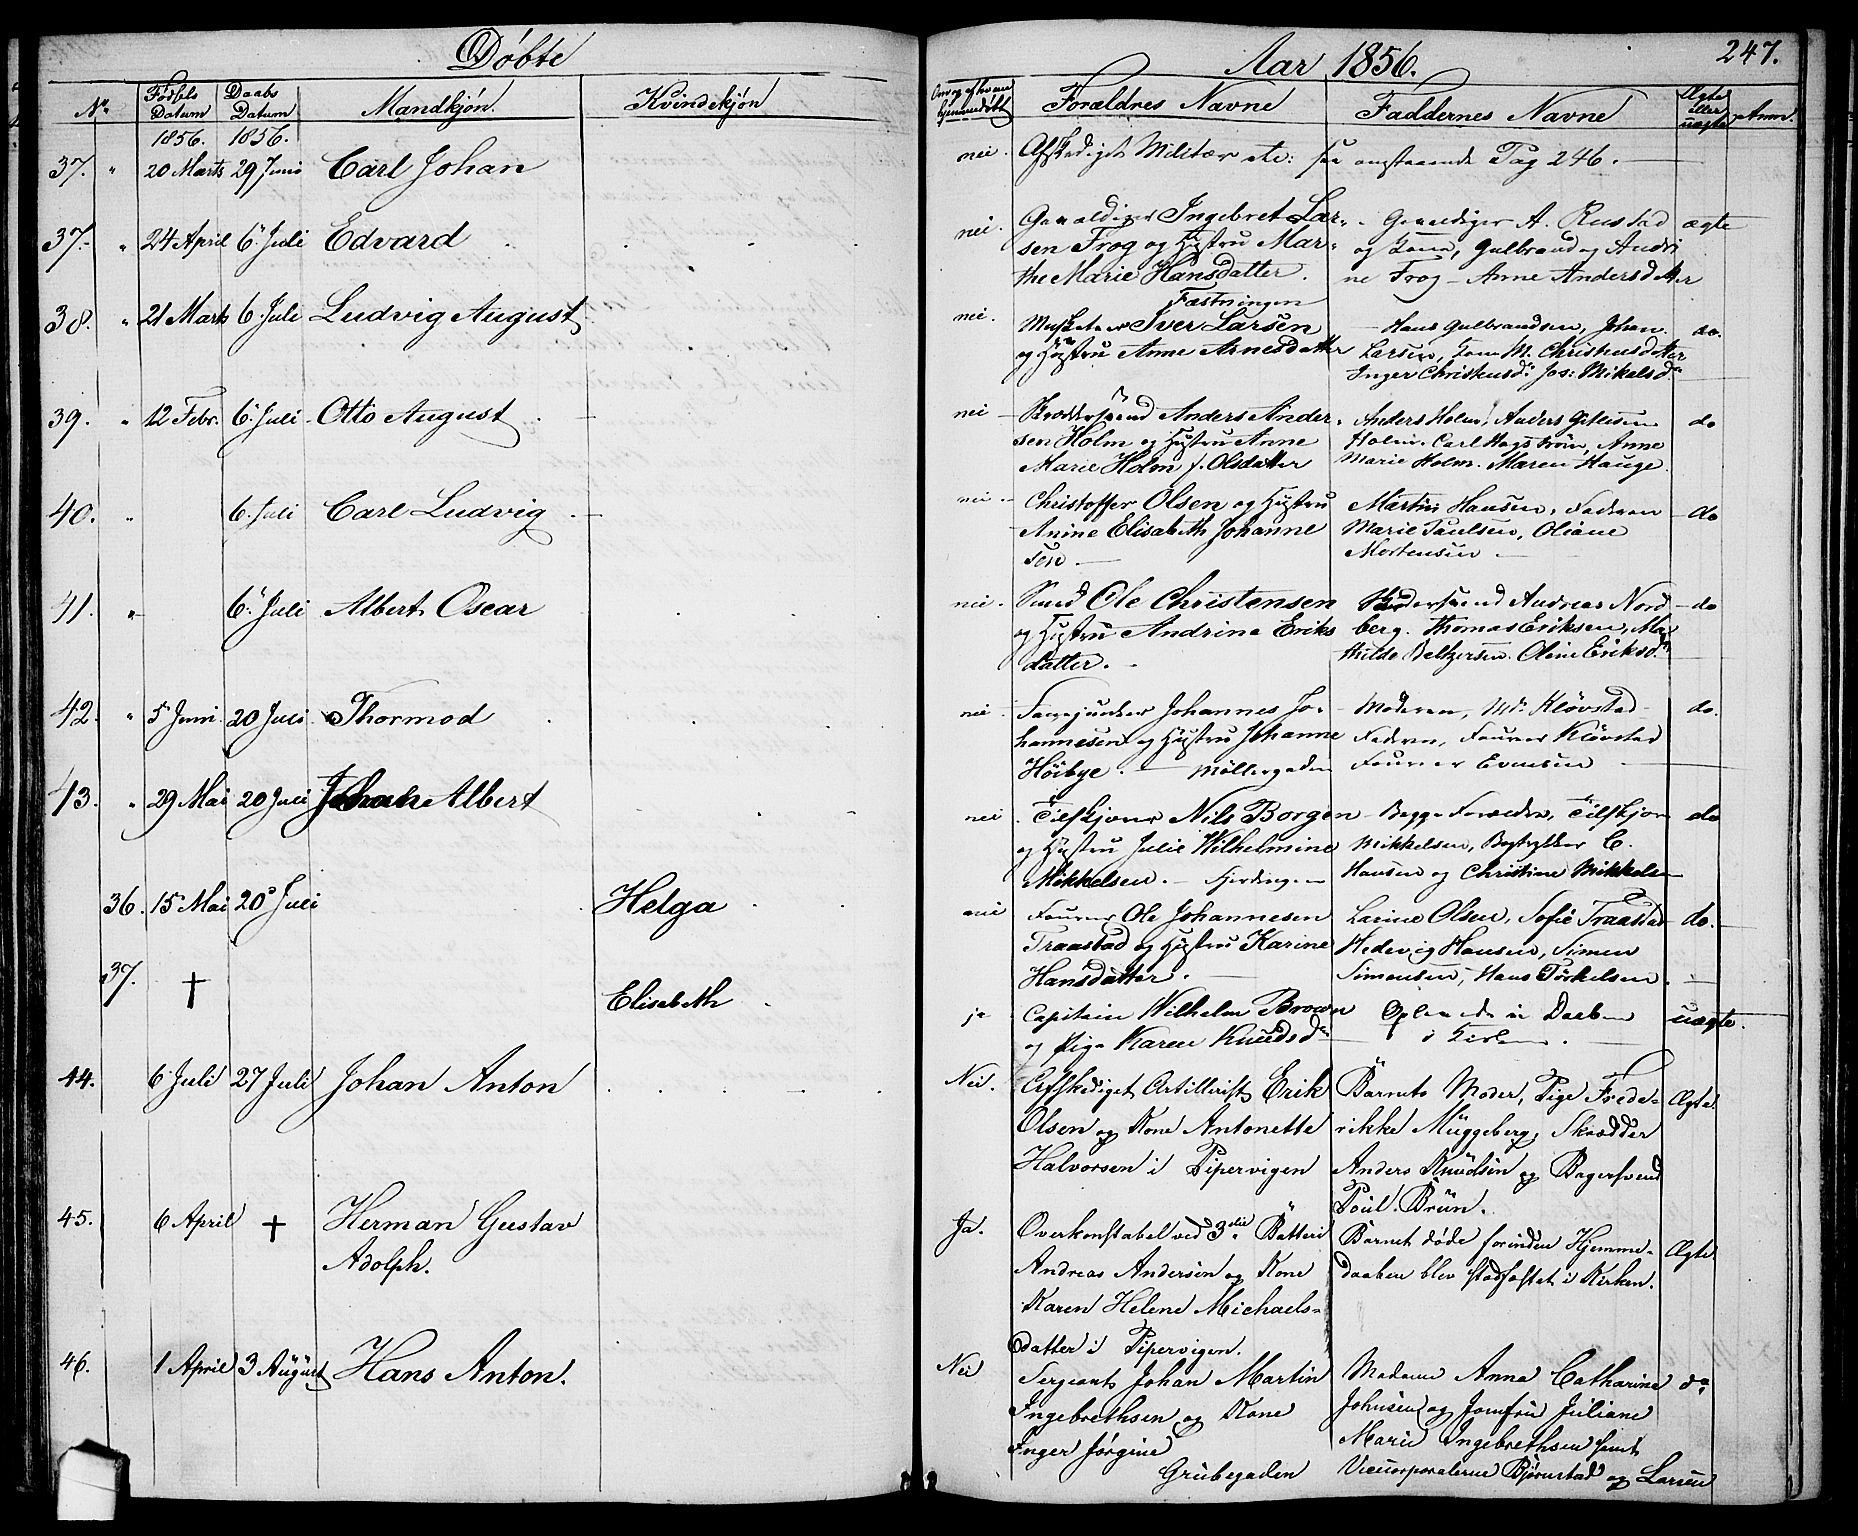 Døbte
Aar 1856.
247.
No
Fødsels Datum
Daabs Datum
Mandkjøn.
Kvindekjøn
Om og af hvem hjemmedøbt
Forældres Navne
Faddernes Navne
Ægte eller uægte
Anm.
1856. 1856.
37. " 20 Marts 29 Juni Carl Johan
nei. Afskediget Militær etc: see Pag 246.
37. " 24 April 6 Juli Edvard
nei. Ingebret Lar-
sen Frog og Hustru Mar-
the Marie Hansdatter.
Fæstningen
A. Rustad
og Kone, Gulbrand og Andri
ne Frog - Anne Andersdatter
ægte
38. " 21 Marts 6 Juli Ludvig August
nei. Musketeer Iver Larsen
og Hustru Anne Arnesdatter
Hans Gulbrandsen, Johan
Larsen, Kone M. Christensdatter
Inger Christensd. Jos: Mikelsd.
do.
39. " 12 Febr. 6 Juli Otto August
nei Anders Ander-
sen Holm og Hustru Anne
Marie Holm f. Olsdatter
Anders Holm, Anders
Holm. Carl Hagstrøm, Anne
Marie Holm. Maren Hauge.
do
40. " 6. Juli Carl Ludvig
nei Christoffer Olsen og Hustru
Anine Elisabeth Johanne
sen
Martin Hansen, Faderen
Marie Paulsen, Oliane
Mortensen
do
41. " 6. Juli Albert Oscar
nei. Smed Ole Christensen
og Hustru Andrine Eriks
datter.
Andreas Nord
berg. Thomas Eriksen, Ma
thilde Beltzersen. Oline Eriksd.
do
42. " 5 Juni 20 Juli Thormod
nei Johannes Jo-
hannesen og Hustru Johanne
Høibye. Møllergaden
Moderen, Md. Kløvstad
Faderen, Fourer Kløvstad
Fourer Evensen
do.
43. " 29 Mai 20 Juli Johan Albert
nei Nils Borgen
og Hustru Julie Wilhelmine
Mikkelsen.
Begge Forældre,
Mikkelsen, Bogtrykker C.
Hansen og Christine Mikkelsen
do
36. 15 Mai 20 Juli Helga
nei Fourer Ole Johannesen
Traastad og Hustru Karine
Hansdatter.
Larine Olsen, Sofie Traastad
Hedevig Hansen, Simen
Simensen, Hans Torkelsen.
do.
37. † Elisabeth
ja Capitain Wilhelm Brown
og Pige Karen Knudsd.
uægte.
44. 6 Juli 27 Juli Johan Anton
Nei. Afskediget Artillerist Erik
Olsen og Kone Antonette
Halvorsen i Pipervigen
Barnets Moder, Pige Frede-
rikke Müggeberg, Skrædder
Anders Knudsen og Bagersvend
Poul Brün.
Ægte
45. 6 April † Herman Gustav
Adolph.
Ja. Overkonstabel ved 3die Batteri
Andreas Andersen og Kone
Karen Helene Michaels-
datter i Pipervigen.
Barnet døde forinden Hjemme-
daaben blev stadfæstet i Kirken.
Ægte
46. 1 April 3 August Hans Anton.
Nei Sergeant Johan Martin
Ingebrethsen og Kone
Inger Jørgine
Grubegaden
Madame Anna Catharina
Johnsen og Jomfru Juliane
Marie Ingebrethsen samt
Vicecorporalerne Bjørnstad og Larsen
do